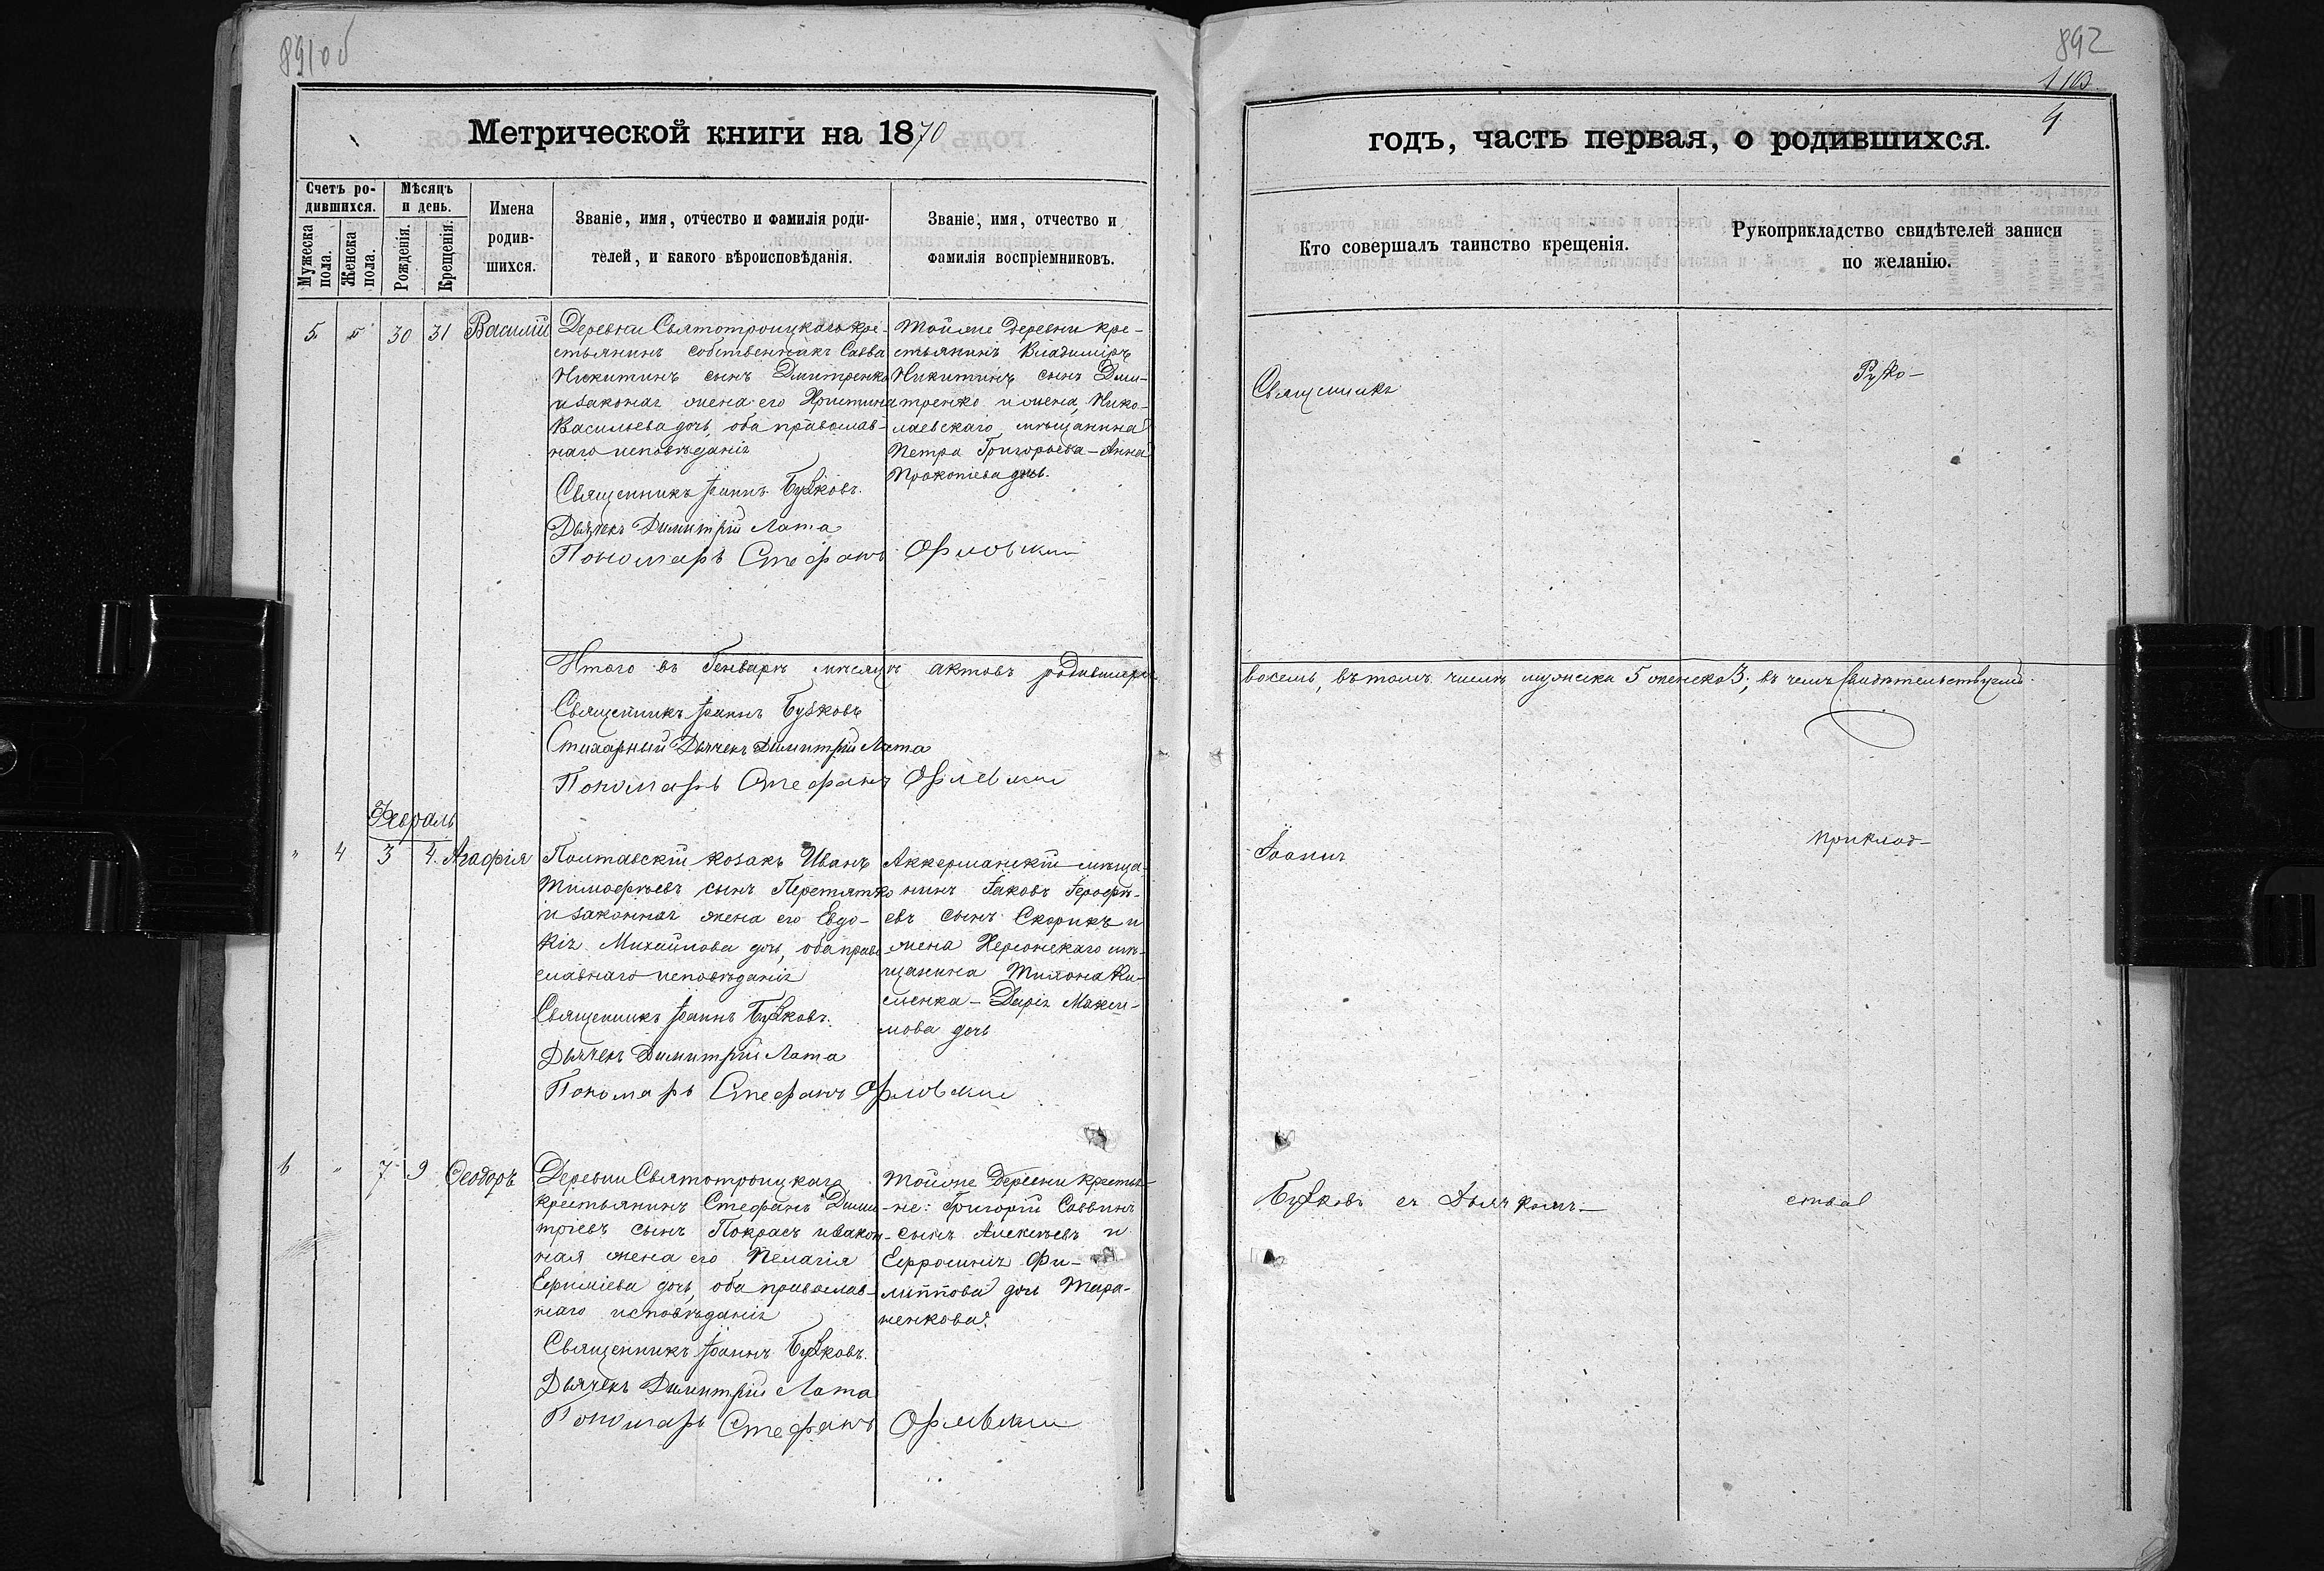 891об
Метрической книги на 1870
Счетъ ро-
дившихся.
Мѣсяцъ
и день.
Мужеска
пола.
Женска
пола.
Рожденія.
Крещенія.
Имена
родив-
шихся.
Званіе, имя, отчество и фамилія роди-
телей, и какого вѣроисповѣданія.
Званіе, имя, отчество и
фамилія воспріемниковъ.
5
30
31
Василій
Деревни Святотроицкаго кре-
стьянинъ собственникъ Савва
Никитинъ сынъ Дмитренко
и законая жена его Христина
Васильева дочь, оба православ-
наго исповѣданія
Священникъ Іоаннъ Бужковъ.
Дьячекъ Димитрій Лата
Пономарь Стефанъ Орловскій
Тойже деревни кре-
стьянинъ Владиміръ
Никитинъ сынъ Дми-
тренко и жена, Нико-
лаевскаго мѣщанина
Петра Григорьева - Анна
Прокопіева дочь.
Итого въ Генварѣ мѣсяцѣ актовъ родившихся
Священникъ Іоаннъ Бужковъ
Стихарный Дьячекъ Димитрій Лата
Пономарь Стефанъ Орловскій
Февраль
"
4
3
4.
Агафія
Полтавскій козакъ Иванъ
Тимофѣевъ сынъ Перетятко
и законная жена его Евдо-
кія Михайлова дочь, оба право-
славнаго исповѣданія
Священникъ Іоаннъ Бужковъ.
Дьячекъ Димитрій Лата
Пономарь Стефанъ Орловскій
Аккерманскій мѣща-
нинъ Іаковъ Іерофѣ-
евъ сынъ Скорикъ и
жена Херсонскаго мѣ-
щанина Тихона Ки-
сленка - Дарія Макси-
мова дочь
6
"
7
9
Ѳеодоръ
Деревни Святотроицкаго
крестьянинъ Стефанъ Дими-
тріевъ сынъ Покрасъ и закон-
ная жена его Пелагія
Евфиміева дочь, оба православ-
наго исповѣданія
Священникъ Іоаннъ Бужковъ.
Дьячекъ Димитрій Лата
Пономарь Стефанъ Орловскій
Тойже Деревни крестья-
не: Григорій Саввинъ
сынъ Алексѣевъ и
Евфросинія Фи-
липпова дочь Тара-
ненкова.
892
110.
4
годъ, часть первая, о родившихся.
Кто совершалъ таинство крещенія.
Рукоприкладство свидѣтелей записи
по желанію.
Священникъ
Руко-
восемь, въ томъ числѣ мужска 5 женско 3, въ чемъ свидѣтельствуемъ.
Іоаннъ
приклад-
Бужковъ съ Дьячкомъ.
ства